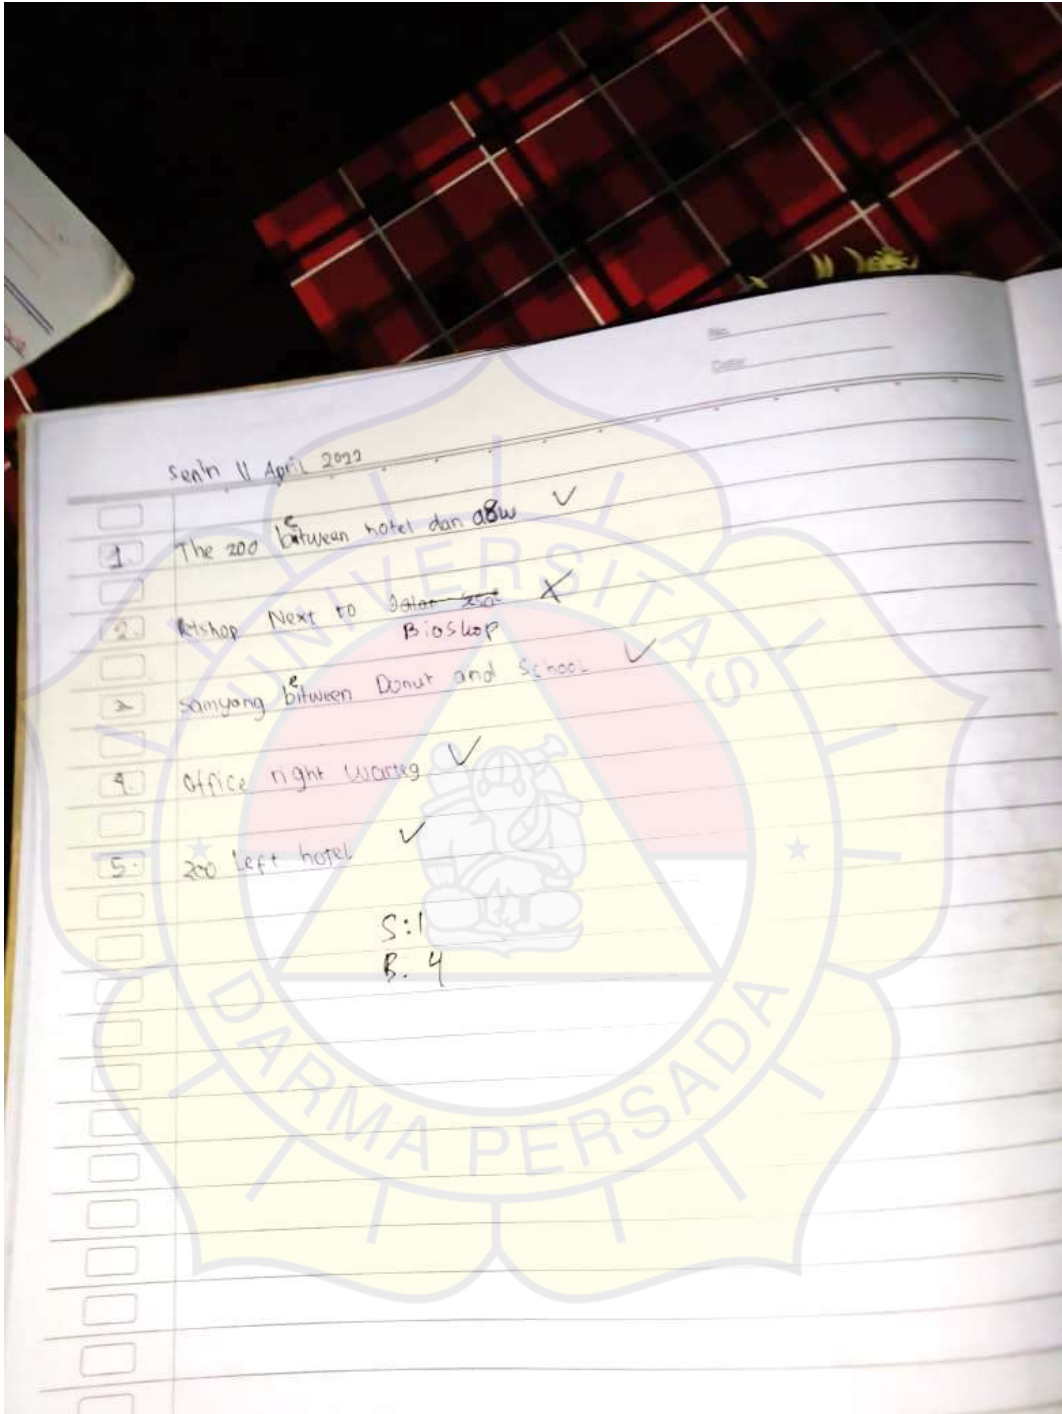 No.
Date:
Senin 11 April 2022
1. The zoo between hotel dan a&w ✓
2. Petshop Next to Jalan X
Bioskop
3. Samyang between Donut and School ✓
4. Office right warteg ✓
5. zoo Left hotel ✓
S: 1
B: 4
UNIVERSITAS
DARMA PERSADA